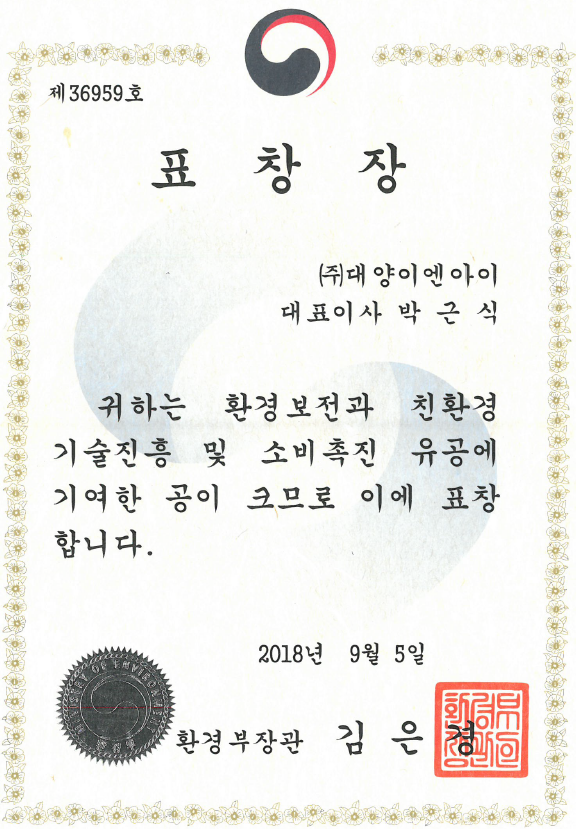 제36959호
표 창 장
(주)대양이엔아이
대표이사 박 근 식
귀하는 환경보전과 친환경
기술진흥 및 소비촉진 유공에
기여한 공이 크므로 이에 표창
합니다.
2018년 9월 5일
환경부장관 김 은 경